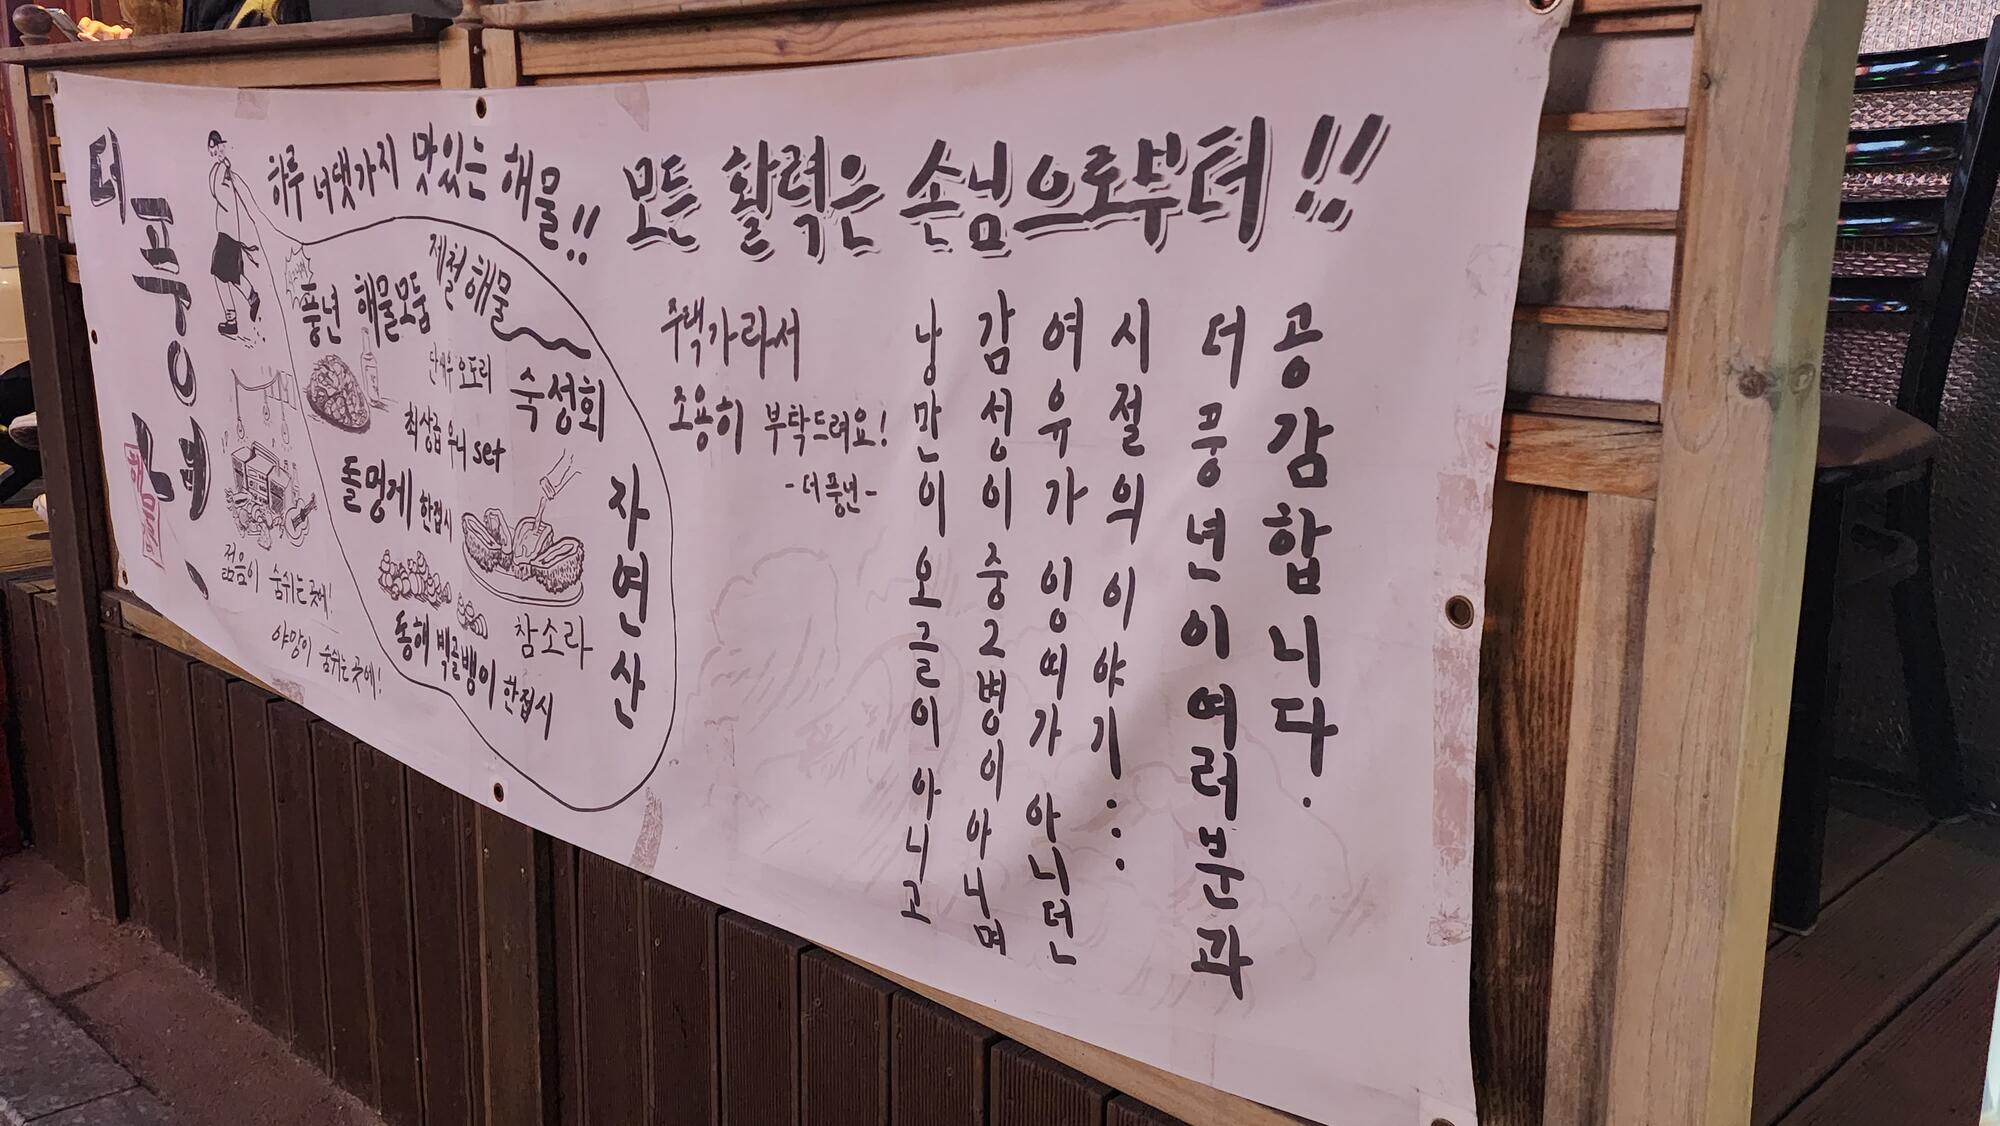 더풍년
하루 너댓가지 맛있는 해물!!
모든 활력은 손님으로부터!!
제철해물
풍년 해물모둠
단새우 오도리
숙성회
최상급 우니 set
돌멍게 한접시
자연산
참소라
동해 백골뱅이 한접시
젊음이 숨쉬는 곳에!
야망이 숨쉬는 곳에!
주택가라서
조용히 부탁드려요!
-더풍년-
낭만이 오글이 아니고
감성이 중2병이 아니며
여유가 잉여가 아니던
시절의 이야기...
더풍년이 여러분과
공감합니다.